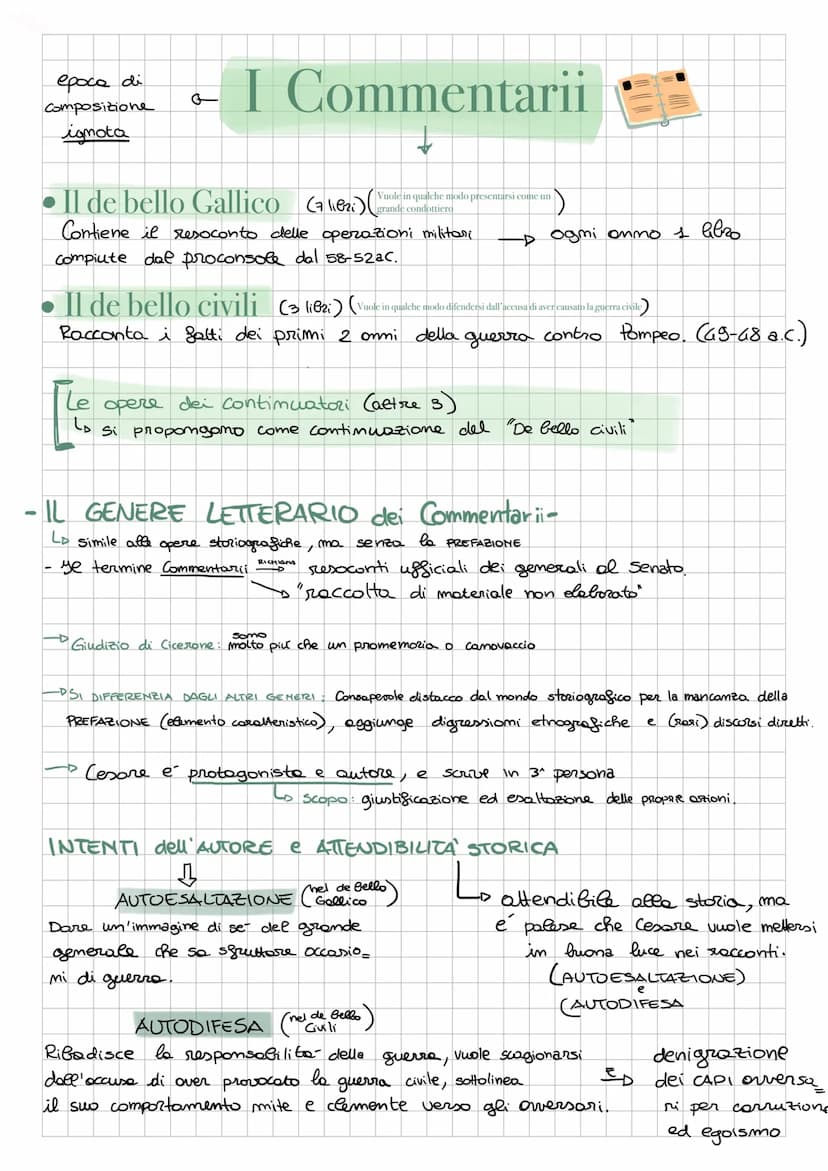 epoca di
composizione
ignota
I Commentarii
• Il de bello Gallico (7 libri) (Vuole in qualche modo presentarsi come un
grande condottiero)
Contiene il resoconto delle operazioni militari → ogni anno 1 libro
compiute dal proconsole dal 58-52ac.
• Il de bello civili (3 libri) (Vuole in qualche modo difendersi dall'accusa di aver causato la guerra civile)
Racconta i fatti dei primi 2 anni della guerra contro Pompeo. (49-48 a.c.)
Le opere dei continuatori (altre 3)
↳ si propongono come continuazione del "De bello civili"
- IL GENERE LETTERARIO dei Commentarii-
↳ simile alle opere storiografiche, ma senza la PREFAZIONE
- Il termine Commentarii RICHIAMA → resoconti ufficiali dei generali al Senato.
→ "raccolta di materiale non elaborato"
→ Giudizio di Cicerone: sono
molto piu' che un promemoria o canovaccio
→ SI DIFFERENZIA DAGLI ALTRI GENERI: Consapevole distacco dal mondo storiografico per la mancanza della
PREFAZIONE (elemento caratteristico), aggiunge digressioni etnografiche e (rari) discorsi diretti.
→ Cesare e' protagonista e autore, e scrive in 3ª persona
↳ Scopo: giustificazione ed esaltazione delle proprie azioni.
INTENTI dell'AUTORE e ATTENDIBILITA' STORICA
AUTOESALTAZIONE (nel de Bello
Gallico)
Dare un'immagine di se- del grande
generale che sa sfruttare occasio=
ni di guerra.
→ attendibile alla storia, ma
e' palese che Cesare vuole mettersi
in buona luce nei racconti.
(AUTOESALTAZIONE)
e
(AUTODIFESA
AUTODIFESA (nel de Bello
Civili)
Ribadisce la responsabilita- della guerra, vuole scagionarsi
dall'accusa di aver provocato la guerra civile, sottolinea
il suo comportamento mite e clemente verso gli avversari.
E → denigrazione
dei CAPI avversa=
ri per corruzione
ed egoismo